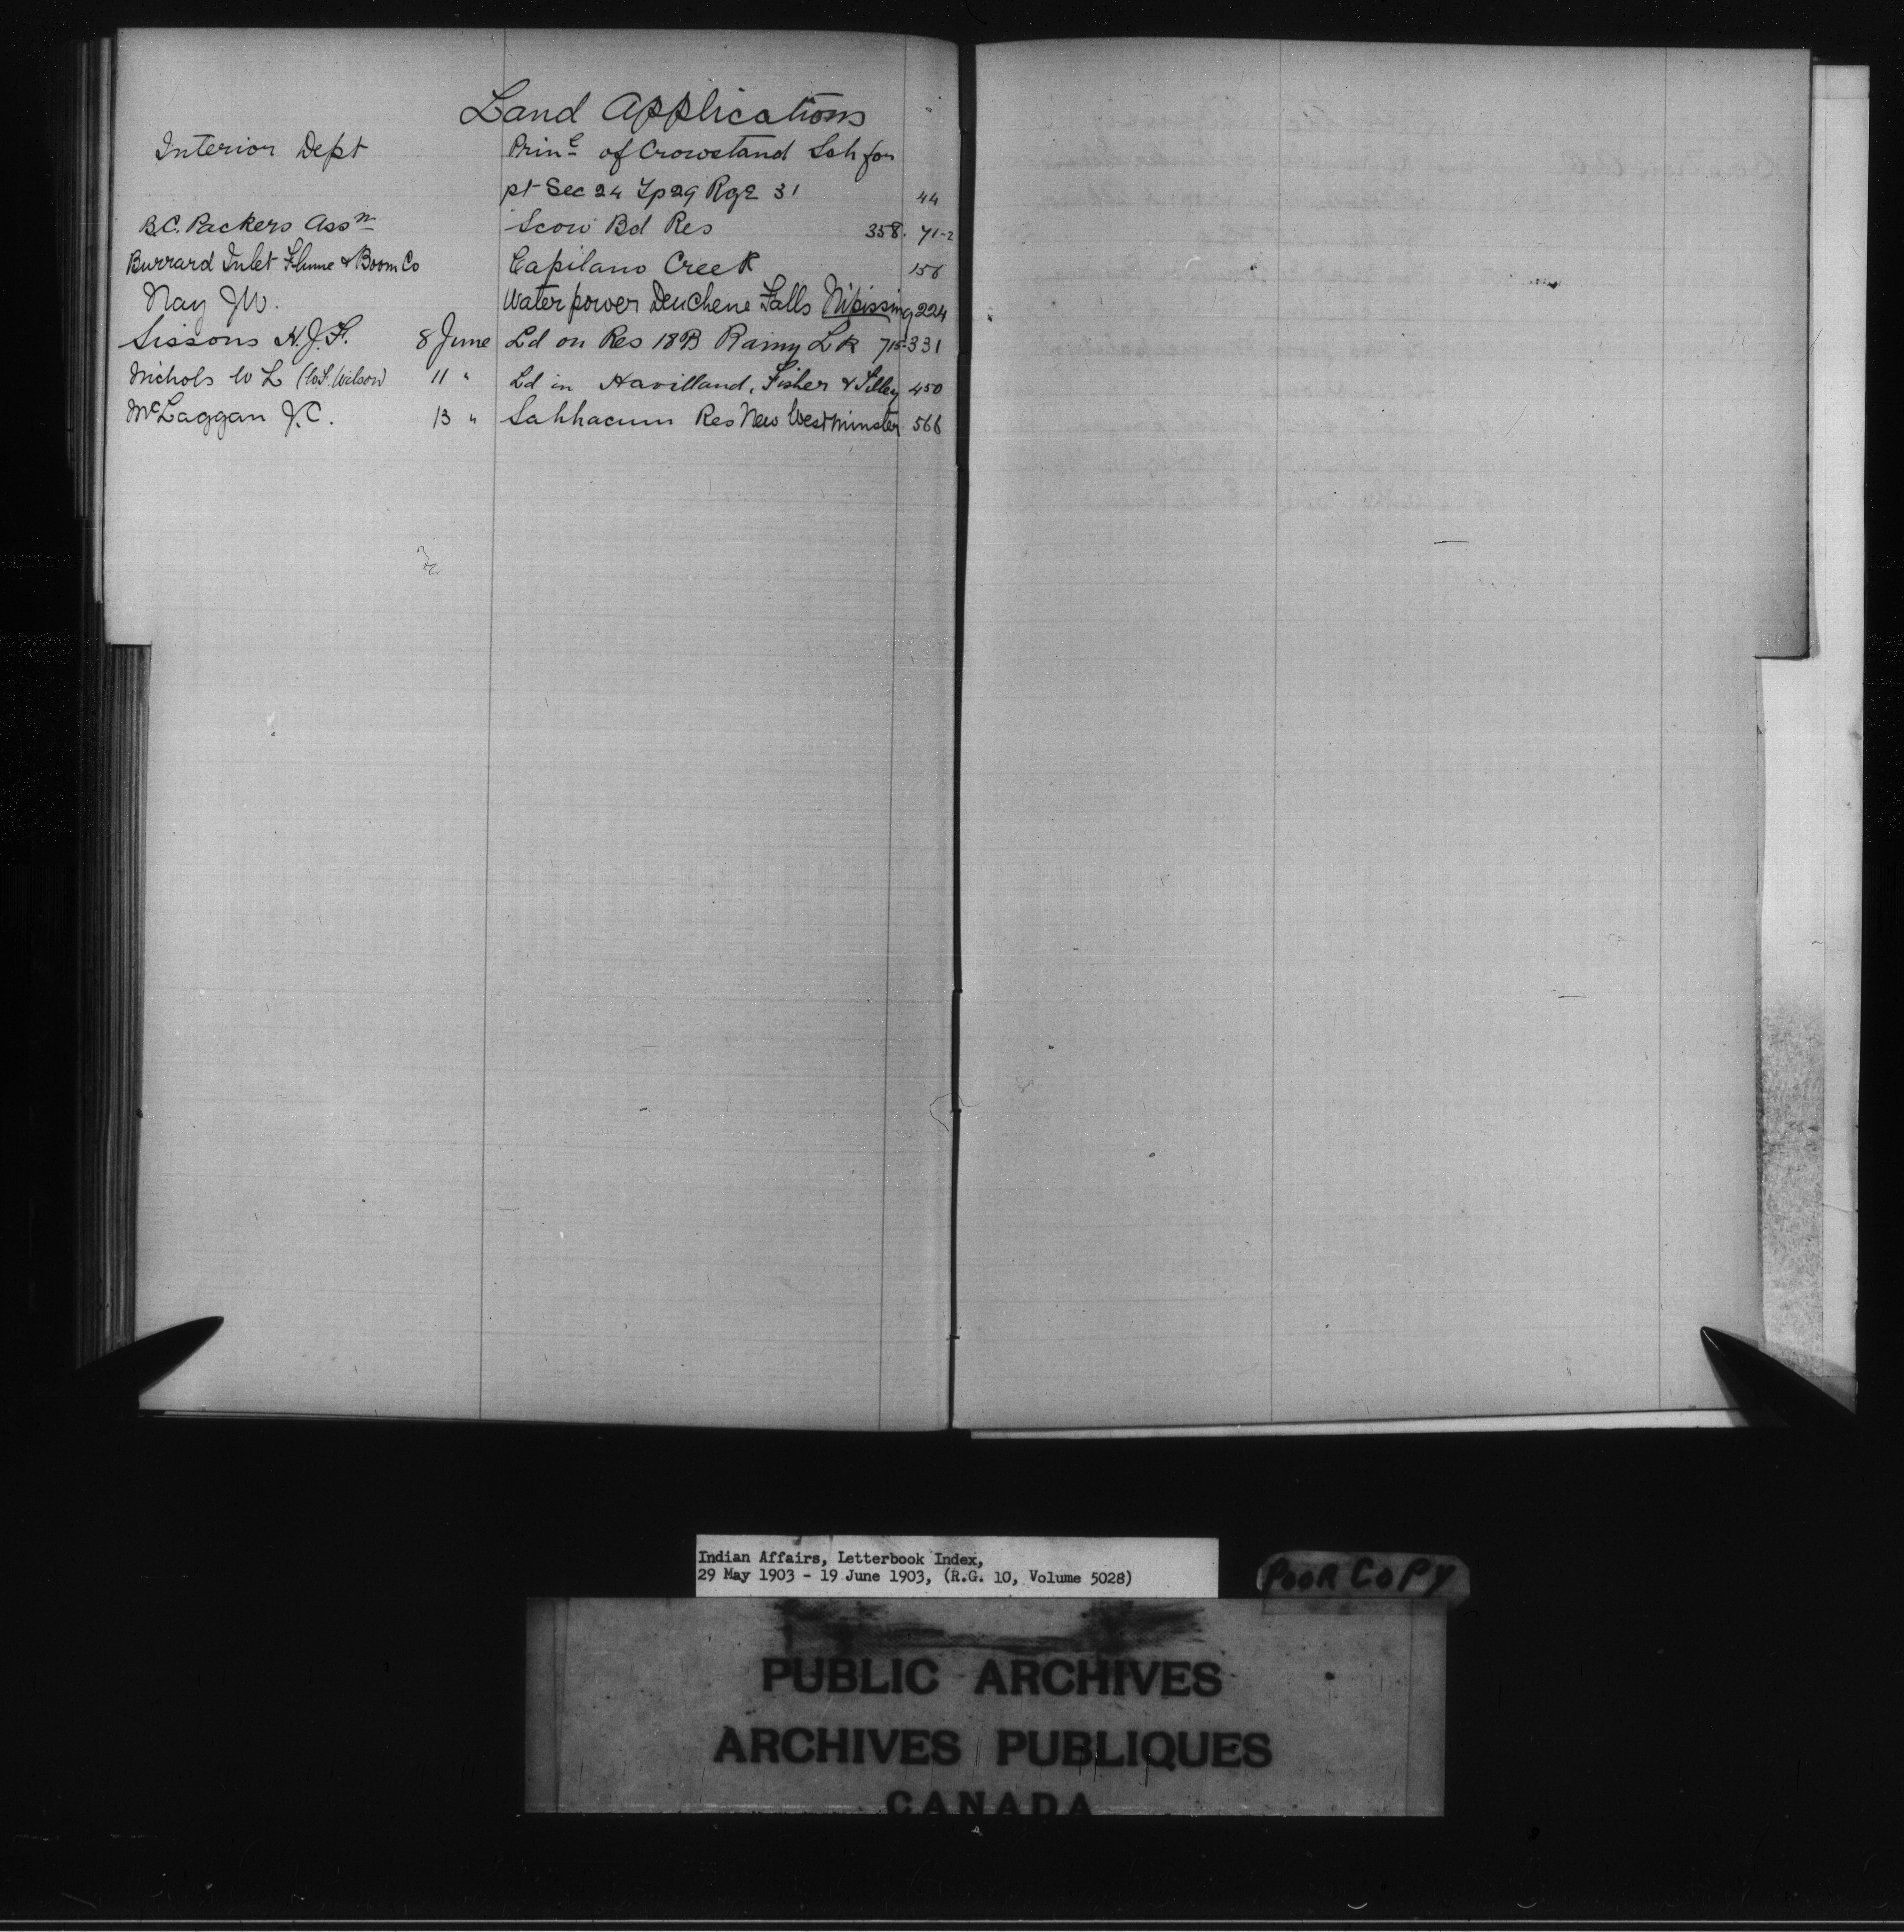 Land Applications
Interior Dept Prin.e of Crowstand Sch for
pt Sec 24 Tp 29 Rge 31 44
B.C. Packers Assn Scow Bd Res 358. 71-2
Burrard Inlet Flume & Boom Co Capilano Creek 156
Nay J W. Water power Deuchene Falls Nipissing 224
Sissons H. J. F. 8 June Ld on Res 18B Rainy Lk 715-331
Nichols W L (W.F. Wilson) 11 " Ld in Havilland, Fisher & Tilley 450
McLaggan J. C. 13 " Sahhacum Res New Westminster 566
Indian Affairs, Letterbook Index,
29 May 1903 - 19 June 1903, (R.G. 10, Volume 5028)
POOR COPY
PUBLIC ARCHIVES
ARCHIVES PUBLIQUES
CANADA